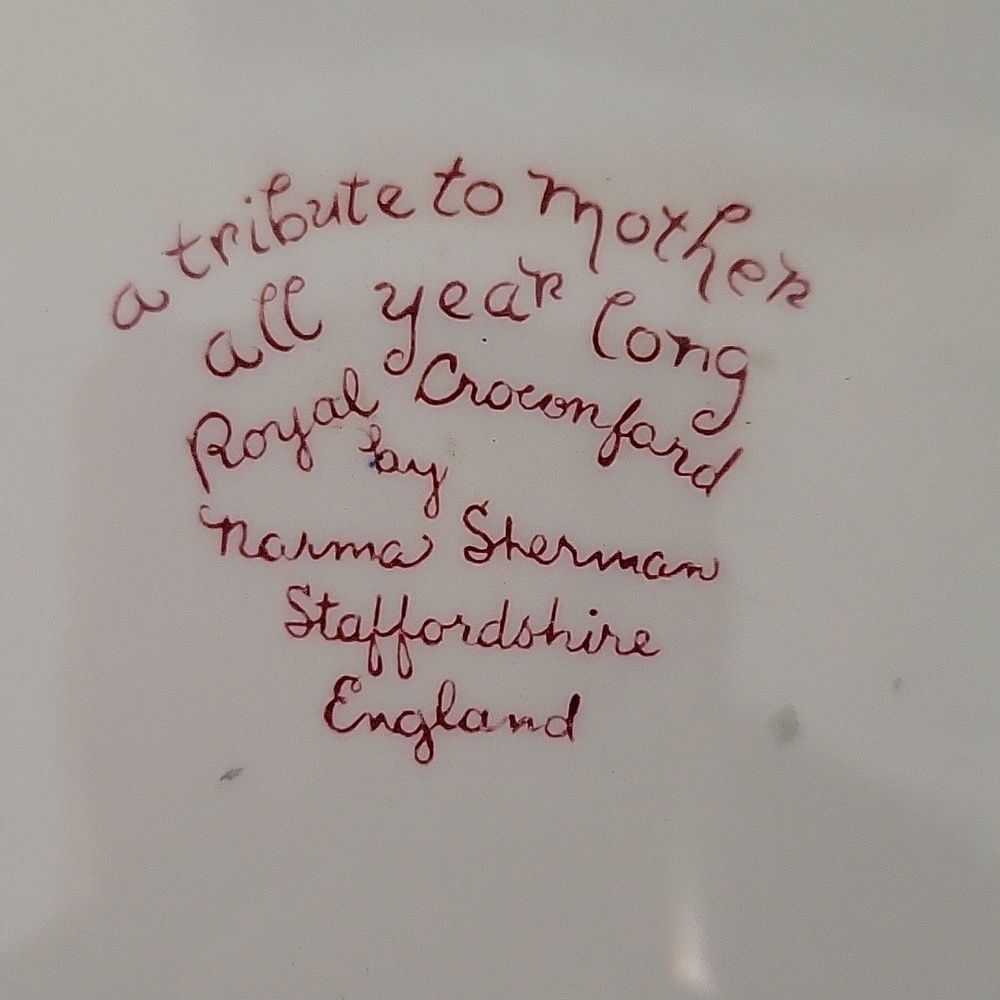 a tribute to Mother
all year long
Royal Crownford
by
Norma Sherman
Staffordshire
England